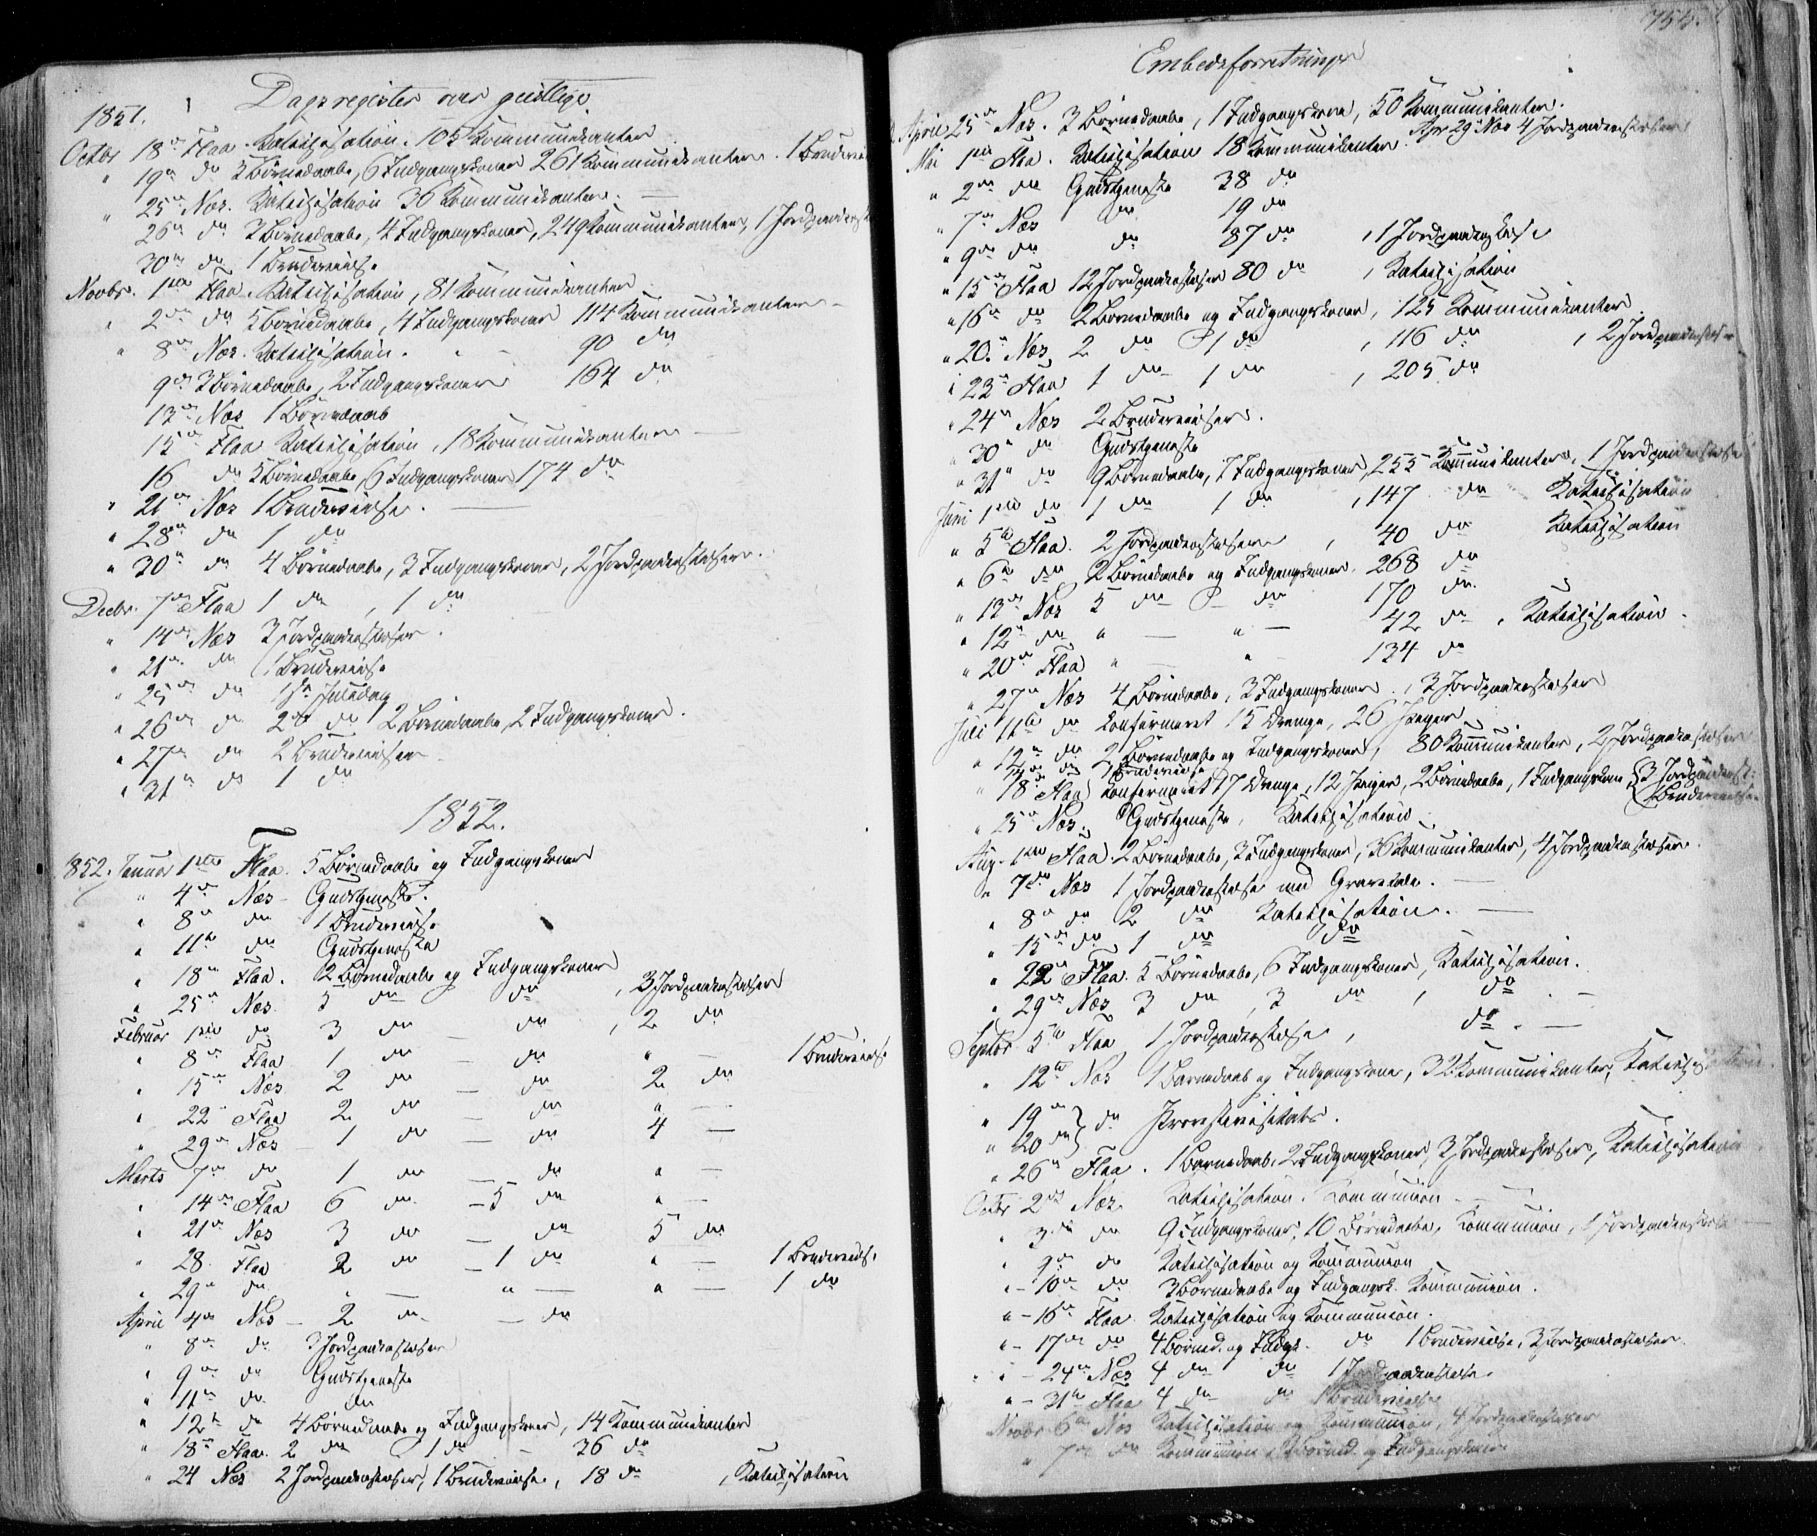 Dagsregister over geistlige
1851.
Octbr 18de Flaa. Katechisation. 105 Kommunikanter
" 19de do 3 Børnedaabe, 6 Indgangskoner 261 Kommunikanter. 1 Brudevielse
" 25de Næs. Katechisation 36 Kommunikanter. —
26de do 3 Børnedaabe, 4 Indgangskoner, 249 Kommunikanter, 1 Jordpaakastelse
30te do 1 Brudevielse
Novbr. 1ste Flaa. Katechisation, 81 Kommunikanter
" 2den do 5 Børnedaabe, 4 Indgangskoner 114 Kommunikanter —
" 8de Næs. Katechisation. " 90 do
9de 3 Børnedaabe, 2 Indgangskoner 164 do
13de Næs 1 Børnedaab
15de Flaa Katechisation, 18 Kommunikanter —
16 do 5 Børnedaabe, 6 Indgangskoner 174 do
" 21de Næs 1 Brudevielse. —
" 28de do 1 do
" 30te do 4 Børnedaabe, 3 Indgangskoner, 2 Jordpaakastelser.
Decbr. 7de Flaa 1 do, 1 do
" 14de Næs 3 Jordpaakastelser.
" 21de do 1 Brudevielse
" 25de do 1ste Juledag
" 26de do 2den do 2 Børnedaabe, 2 Indgangskoner.
" 27de do 2 Brudevielser
" 31te do 1 do
1852.
852. Januar 1ste Flaa. 5 Børnedaabe og Indgangskoner
" 4de Næs – Gudstjeneste.
" 8de do 1 Brudevielse
" 11te do Gudstjeneste
" 18de Flaa. 2 Børnedaabe og Indgangskoner
" 25de Næs. 5 do do, 3 Jordpaakastelser
Februar 1ste do 3 do do, 2 do
" 8de Flaa 1 do — do " — 1 Brudevielse
" 15de Næs 2 do — do 2 do
" 22de Flaa 2 do — do " —
" 29de Næs 1 do — do 4 —
Marts 7de do 1 do — do " —
" 14de Flaa 6 do — 5 do " —
" 21de Næs 3 do — do 5 do
" 28. Flaa 2 do — 1 do " — 1 Brudevielse.
" 29de do " — " — " — 1 do
April 4de Næs – 2 do — do
" 8de do 3 Jordpaakastelser
" 9de do Gudstjeneste
" 11te do do
" 12te do 4 Børnedaabe og Indgangskoner, 14 Kommunikanter
" 18de Flaa. 2 do 1 do – 36 do
" 24 Næs 2 Jordpaakastelser, 1 Brudevielse, 18 do, Katechisation
Embedsforretninger
April 25de Næs. 3 Børnedaabe, 1 Indgangskone, 50 Kommunikanter.
Apr 29de Næs 4 Jordpaakastelser
Mai 1ste Flaa. Katechisation 18 Kommunikanter.
" 2den do Gudstjeneste 38 do
" 7de Næs do 19 do
" 9de do do 87 do, 1 Jordpaakastelse
" 15de Flaa 12 Jordpaakastelser 80 do, Katechisation
" 16de do 2 Børnedaabe og Indgangskoner, 125 Kommunikanter
" 20de Næs 2 do 1 do, 116 do, 2 Jordpaakastelser
" 23de Flaa 1 do 1 do, 205 do
" 24de Næs 2 Brudevielser.
" 30te do Gudstjeneste
" 31te do 9 Børnedaabe, 7 Indgangskoner, 255 Kommunikanter, 1 Jordpaakastelse
Juni 1ste do 1 do 1 do, 147 do Katechisation
" 5te Flaa. 2 Jordpaakastelser, 40 do Katechisation
" 6te do 2 Børnedaabe og Indgangskoner. 268 do
" 13de Næs 5 do do 170 do.
" 12te do " — " — 42 do, Katechisation.
" 20de Flaa " — " 134 do
" 27de Næs 4 Børnedaabe, 3 Indgangskoner, 3 Jordpaakastelser
Juli 11te do Konfirmeret 15 Drenge, 26 Piger
" 12te do 2 Børnedaabe og Indgangskoner, 80 Kommunikanter, 2 Jordpaakastelser
do 1 Brudevielse
" 18de Flaa Konfirmeret 17 Drenge, 12 Piger, 2 Børnedaabe, 1 Indgangskone {3 Jordpaakast:
1 Brudevielse
" 25de Næs. Gudstjeneste, Katechisation
Aug. 1ste Flaa 2 Børnedaabe, 3 Indgangskoner, 36 Kommunikanter, 4 Jordpaakastelser.
" 7de Næs 1 Jordpaakastelse med Gravetale. —
" 8de do 2 do Katechisation. —
" 15de do 1 do do
" 22de Flaa. 5 Børnedaabe, 6 Indgangskoner, Katechisation.
" 29de Næs 3 do, 3 do, do. —
Septbr 5te Flaa 1 Jordpaakastelse, do. —
" 12te Næs 1 Barnedaab og Indgangskone, 32 Kommunikanter, Katechisation
" 19de } do Provstevisitats.
" 20de }
" 26de Flaa. 1 Barnedaab, 2 Indgangskoner, 3 Jordpaakastelser, Katechisation
Octbr 2den Næs. Katechisation. Kommunion —
" 3die do 9 Indgangskoner, 10 Børnedaabe, Kommunion, 1 Jordpaakastelse
" 9de do Katechisation og Kommunion
" – 10de do 3 Børnedaabe og Indgangsk. Kommunion.
" – 16de Flaa. Katechisation og Kommunion.
" – 17de do 4 Børned. og Indgk. do 1 Brudevielse, 3 Jordpaakastelser.
" – 24de Næs 4 do do 1 Jordpaakastelse.
" – 31te Flaa 4 do do 1 Brudevielse
Novbr 6te Næs Katechisation og Kommunion, 4 Jordpaakastelser
" 7de do Kommunion, Børned. og Indgangskoner